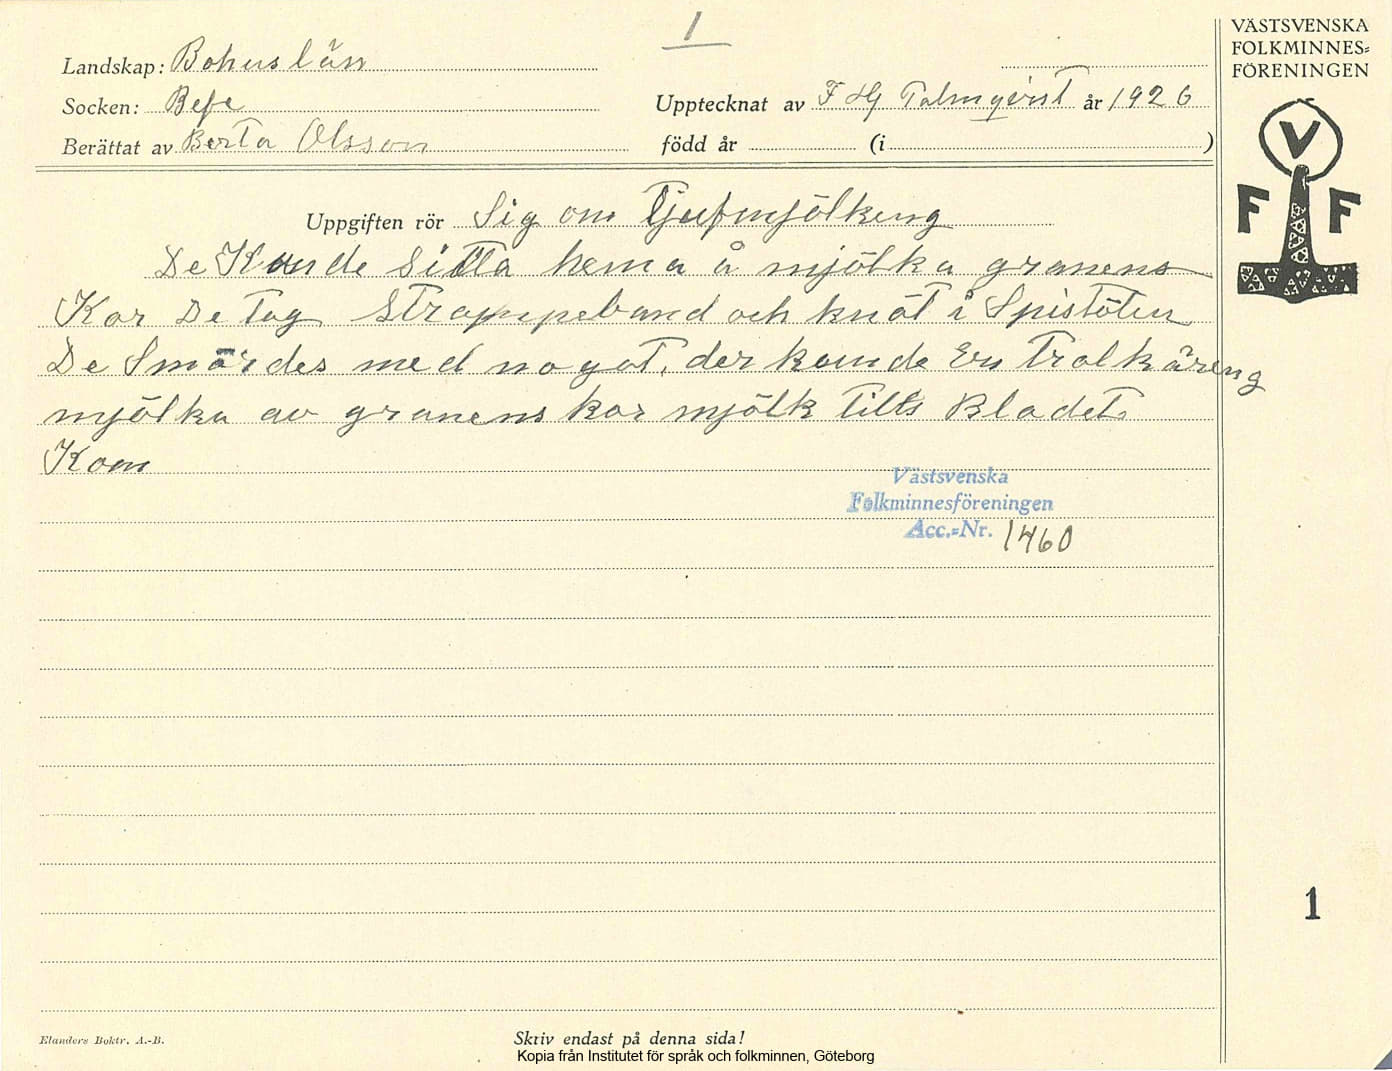 1
VÄSTSVENSKA
FOLKMINNES=
FÖRENINGEN
Landskap: Bohuslän
Socken: Befe
Upptecknat av F Hj Palmqvist år 1926
Berättat av Berta Olsson
född år (i )
V
F F
Uppgiften rör Sig om Tjufmjölkeng
De Kunde Sitta hema å mjölka granens
Kor De Tog Strompeband och knöt i Spistöten
De Smördes med nogot, der kunde En Trolkäreng
mjölka av granens kor mjölk Tills Blodet
Kom
Västsvenska
Folkminnesföreningen
Acc.=Nr. 1460
1
Elanders Boktr. A.-B.
Skriv endast på denna sida!
Kopia från Institutet för språk och folkminnen, Göteborg